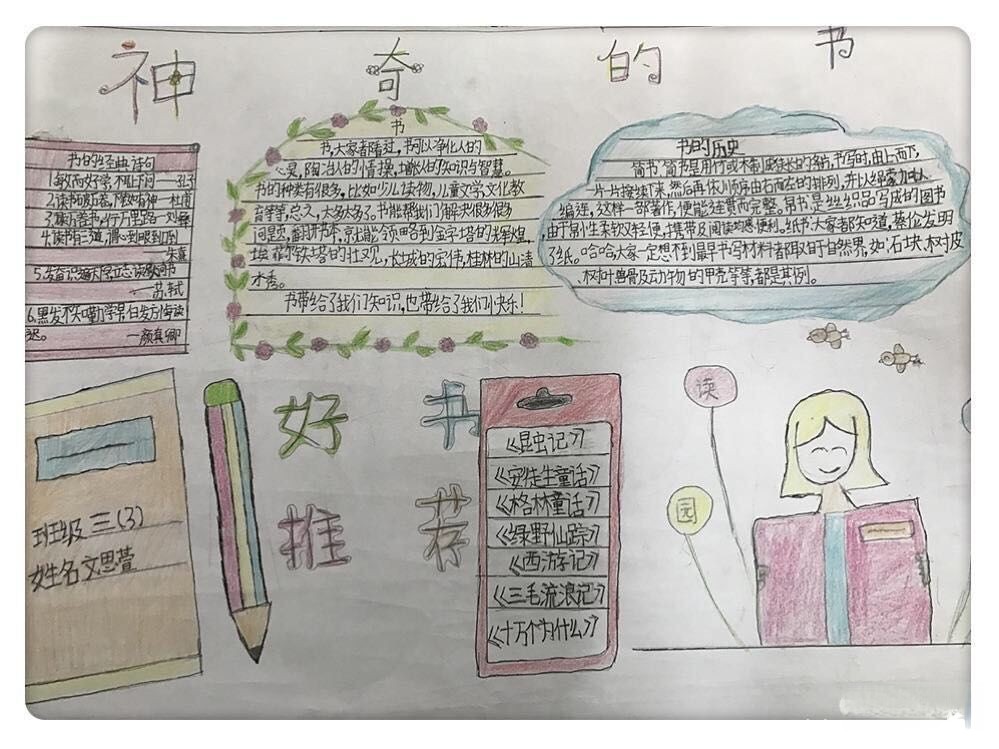 神奇的书
书的经典诗句
1.敏而好学,不耻下问——孔子
2.读书破万卷,下笔如有神——杜甫
3.读万卷书,行万里路——刘彝
4.读书有三道,谓心到眼到口到
——朱熹
5.发奋识遍天下字,立志读尽人间书
——苏轼
6.黑发不知勤学早,白首方悔读
迟。——颜真卿
书
书,大家都看过,书可以净化人的
心灵,陶冶人的小情操,增长人的知识与智慧。
书的种类有很多,比如少儿读物,儿童文学,文化教
育等等,总之,太多太多了。书能帮我们解决很多很多
问题,翻开书本,京尤能领略到金字塔的光辉煌,
埃菲尔铁塔的壮观,长城的宏伟,桂林的山清
水秀。
书带给了我们知识,也带给了我们小快乐!
书的历史
简书,简书是用竹或木制成狭长的条的,书写时,由上而下,
一片片接续下来,然后再休川页序由右而左的排列,并以绳索
编连,这样一部著作,便能连贯而完整。帛书是丝织品写成的图书
由于帛小生来软又轻便,携带及阅读均感便利。纸书:大家都知道,蔡伦发明
了纸。哈哈大家一定想不到最早书写材料者取于自然界,如:石块,树皮
树叶兽骨及动物的甲壳等等,都是其例。
班级 三(3)
姓名 文思萱
好书
推荐
《昆虫记》
《安徒生童话》
《格林童话》
《绿野仙踪》
《西游记》
《三毛流浪记》
《十万个为什么》
读
园